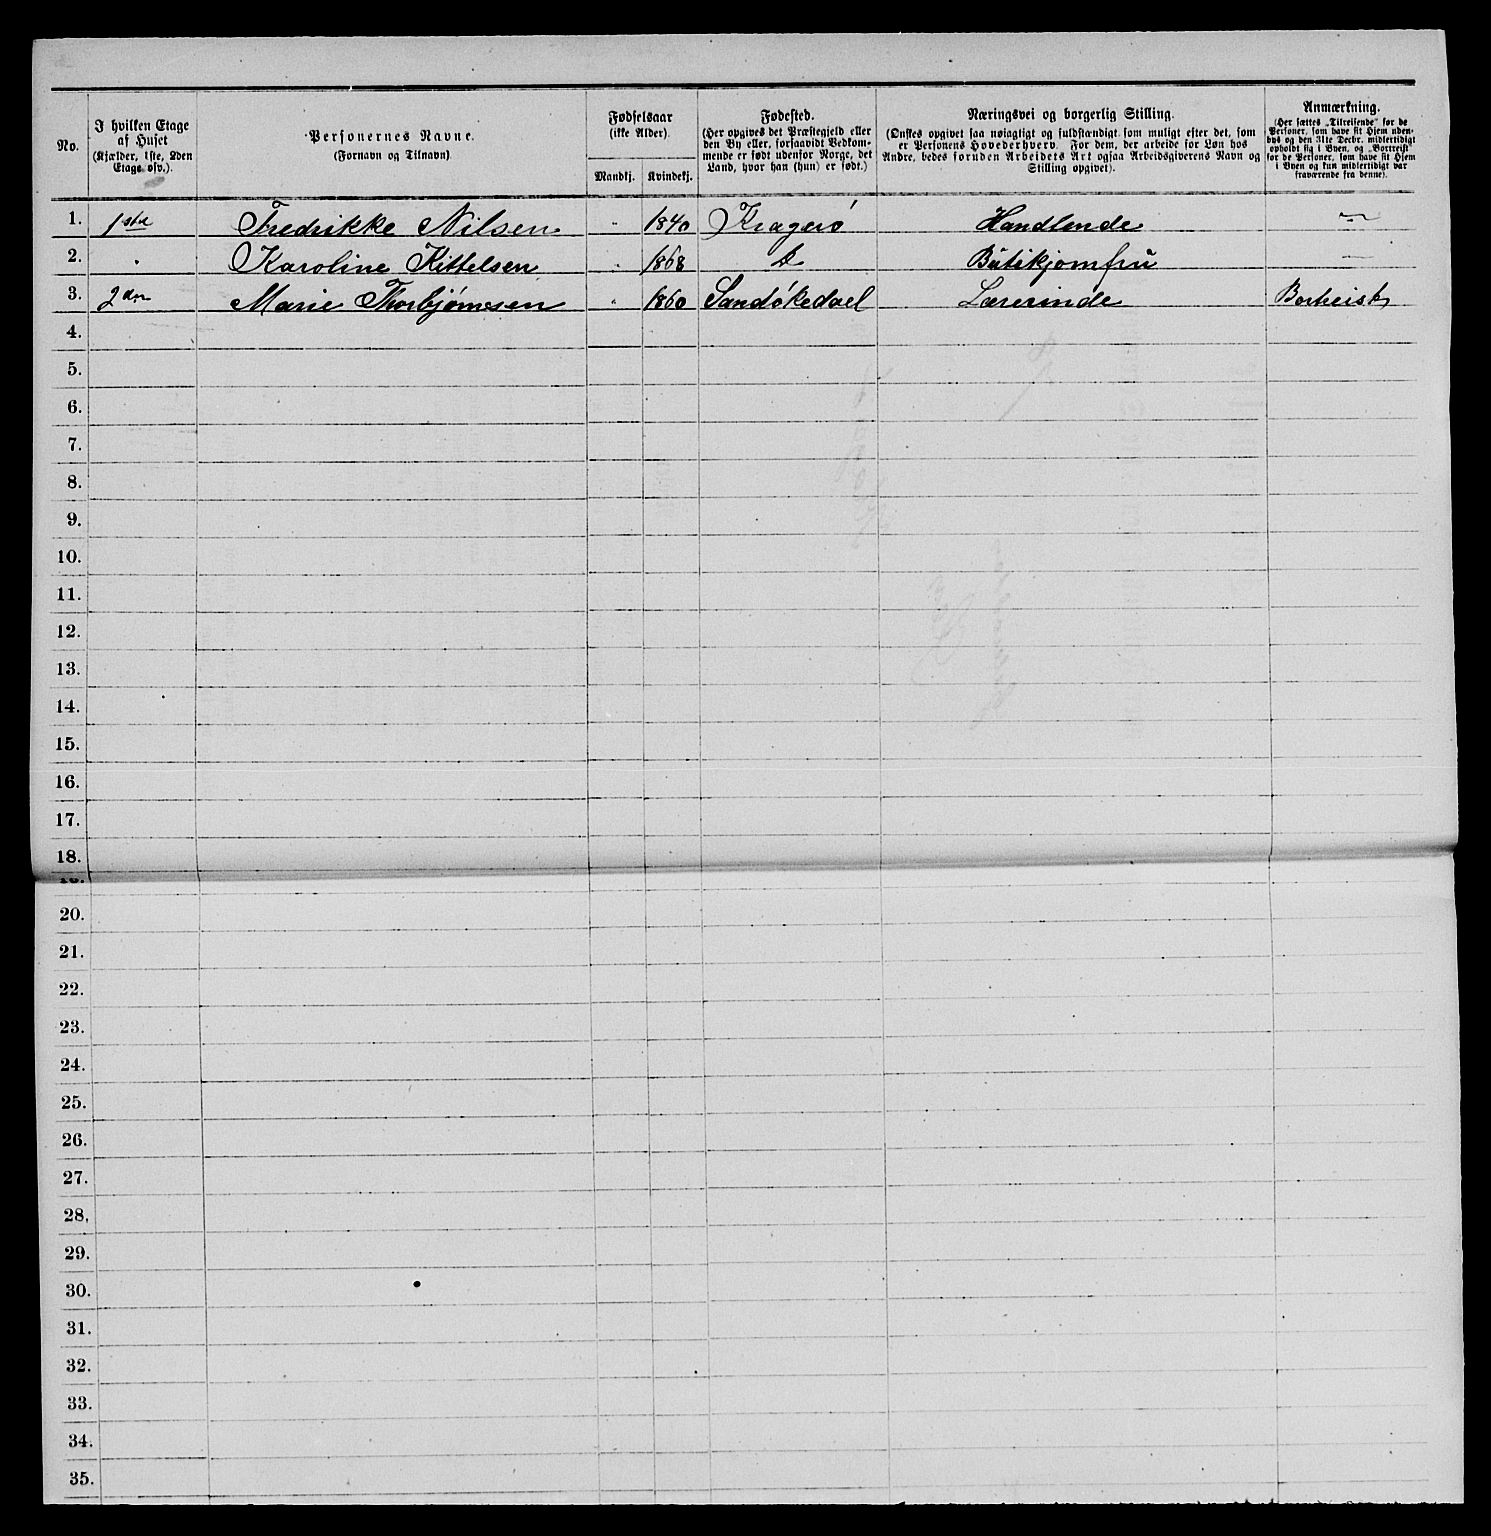 No.
I hvilken Etage
af Huset
(Kjælder, 1ste, 2den
Etage osv.).
Personernes Navne.
(Fornavn og Tilnavn)
Fødselsaar
(ikke Alder).
Mandkj. Kvindekj.
Fødested.
(Her opgives det Præstegjeld eller
den By eller, forsaavidt Vedkom-
mende er født udenfor Norge, det
Land, hvor han (hun) er født.)
Næringsvei og borgerlig Stilling.
(Ønskes opgivet saa nøiagtigt og fuldstændigt som muligt efter det, som
er Personens Hovederhverv. For dem, der arbeide for Løn hos
Andre, bedes foruden Arbeidets Art ogsaa Arbeidsgiverens Navn og
Stilling opgivet).
Anmærkning.
(Her sættes „Tilreisende" for de
Personer, som have sit Hjem uden-
bys og den 31te Decbr. midlertidigt
opholdt sig i Byen, og „Bortreist"
for de Personer, som have sit Hjem
i Byen og kun midlertidigt var
fraværende fra denne).
1. 1ste Fredrikke Nilsen " 1840 Kragerö Handlende —
2. " Karoline Kittelsen " 1868 Do Butikjomfru —
3. 2den Marie Thorbjørnsen " 1860 Sandökedal Lærerinde Bortreist
4.
5.
6.
7.
8.
9.
10.
11.
12.
13.
14.
15.
16.
17.
18.
20.
21.
22.
23.
24.
25.
26.
27.
28.
29.
30.
31.
32.
33.
34.
35.